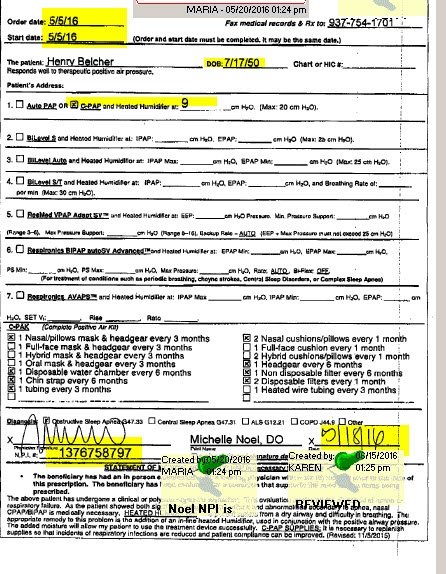 MARIA - 05/20/2016 01:24 pm
Order date: 5/5/16 Fax medical records & Rx to: 937-754-1701
Start date: 5/5/16 (Order and start date must be completed. It may be the same date.)
The patient: Henry Belcher DOB: 7/17/50 Chart or HIC #:
Responds well to therapeutic positive air pressure.
Patient's Address:
1. ☐ Auto PAP OR ☒ C-PAP and Heated Humidifier at: 9 cm H₂O. (Max: 20 cm H₂O).
2. ☐ BiLevel S and Heated Humidifier at: IPAP: cm H₂O, EPAP: cm H₂O (Max: 25 cm H₂O).
3. ☐ BiLevel Auto and Heated Humidifier at: IPAP Max: cm H₂O, EPAP Min: cm H₂O (Max: 25 cm H₂O).
4. ☐ BiLevel S/T and Heated Humidifier at: IPAP: cm H₂O, EPAP: cm H₂O, and Breathing Rate of:
per min (Max: 30 cm H₂O).
5. ☐ ResMed VPAP Adapt SV™ and Heated Humidifier at: EEP: cm H₂O Pressure. Min. Pressure Support: cm H₂O
(Range 3-6), Max Pressure Support: cm H₂O (Range 8-16), Backup Rate - AUTO (EEP + Max Pressure must not exceed 25 cm H₂O)
6. ☐ Respironics BIPAP autoSV Advanced™ and Heated Humidifier at: EPAP Min: cm H₂O, EPAP Max: cm H₂O,
PS Min: cm H₂O, PS Max: cm H₂O, Max Pressure: cm H₂O, Rate: AUTO, Bi-Flex: OFF.
(For treatment of conditions such as periodic breathing, cheyne strokes, Central Sleep Apneas, or Complex Sleep Apnea)
7. ☐ Respironics AVAPS™ and Heated Humidifier at: IPAP Max cm H₂O, IPAP Min: cm H₂O, EPAP: cm
H₂O, SET Vt: Rise Rate
C-PAK (Complete Positive Air Kit)
☒ 1 Nasal/pillows mask & headgear every 3 months ☒ 2 Nasal cushions/pillows every 1 month
☐ 1 Full-face mask & headgear every 3 months ☐ 1 Full-face cushion every 1 month
☐ 1 Hybrid mask & headgear every 3 months ☐ 2 Hybrid cushions/pillows every 1 month
☐ 1 Oral mask & headgear every 3 months ☒ 1 Headgear every 6 months
☒ 1 Disposable water chamber every 6 months ☒ 1 Non disposable filter every 6 months
☒ 1 Chin strap every 6 months ☒ 2 Disposable filters every 1 month
☒ 1 tubing every 3 months ☐ 1 Heated wire tubing every 3 months
Diagnosis: ☒ Obstructive Sleep Apnea G47.33 ☐ Central Sleep Apnea G47.31 ☐ ALS G12.21 ☐ COPD J44.9 ☐ Other
X Michelle Noel, DO X 5/18/16
N.P.I. #: 1376758797
Created by: 05/20/2016
MARIA 01:24 pm
Created by: 06/15/2016
KAREN 01:25 pm
STATEMENT OF
• The beneficiary has had an in person
this prescription. The beneficiary has
prescribed.
Noel NPI is
REVIEWED
The above patient has undergone a clinical or
respiratory failure. As the patient showed both
CPAP/BiPAP is medically necessary. HEATED from a dry airway and difficulty in breathing. The
appropriate remedy to this problem is the addition of an in-line heated Humidifier, used in conjunction with the positive airway pressure.
The added moisture will allow my patient to use the treatment device successfully. C-PAP SUPPLIES: It is necessary to replenish
supplies so that incidents of respiratory infections are reduced and patient compliance can be improved. (Revised: 11/5/2015)